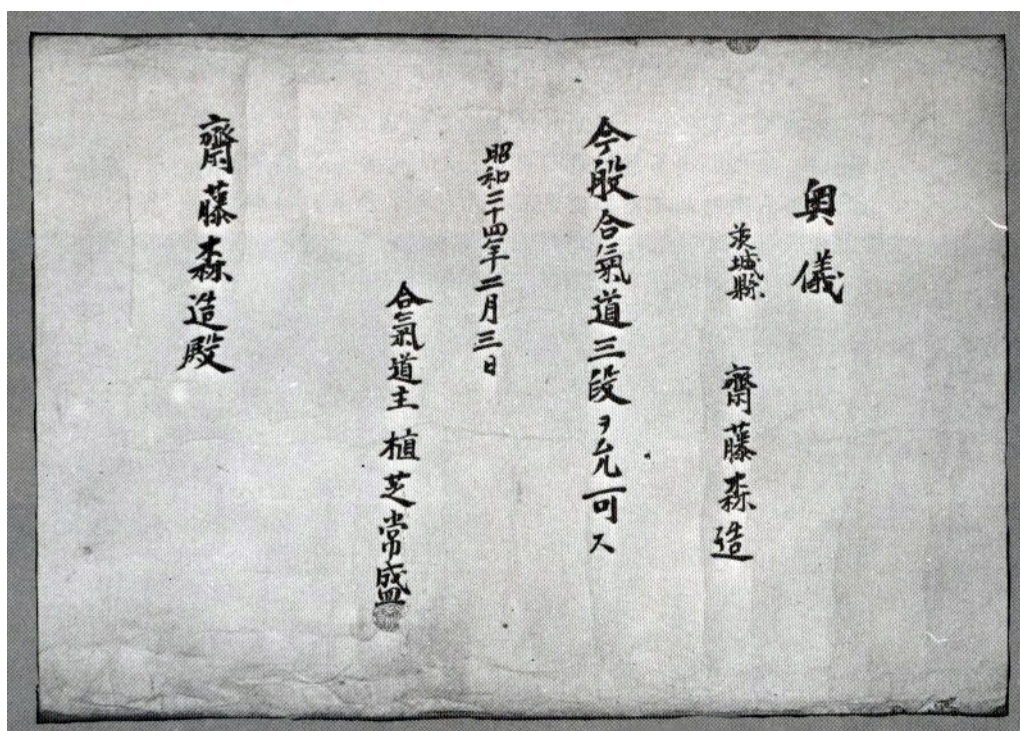 奥儀
茨城縣 齋藤森造
今般合氣道三段ヲ允可ス
昭和二十四年二月三日
合氣道主 植芝常盛
齋藤森造殿